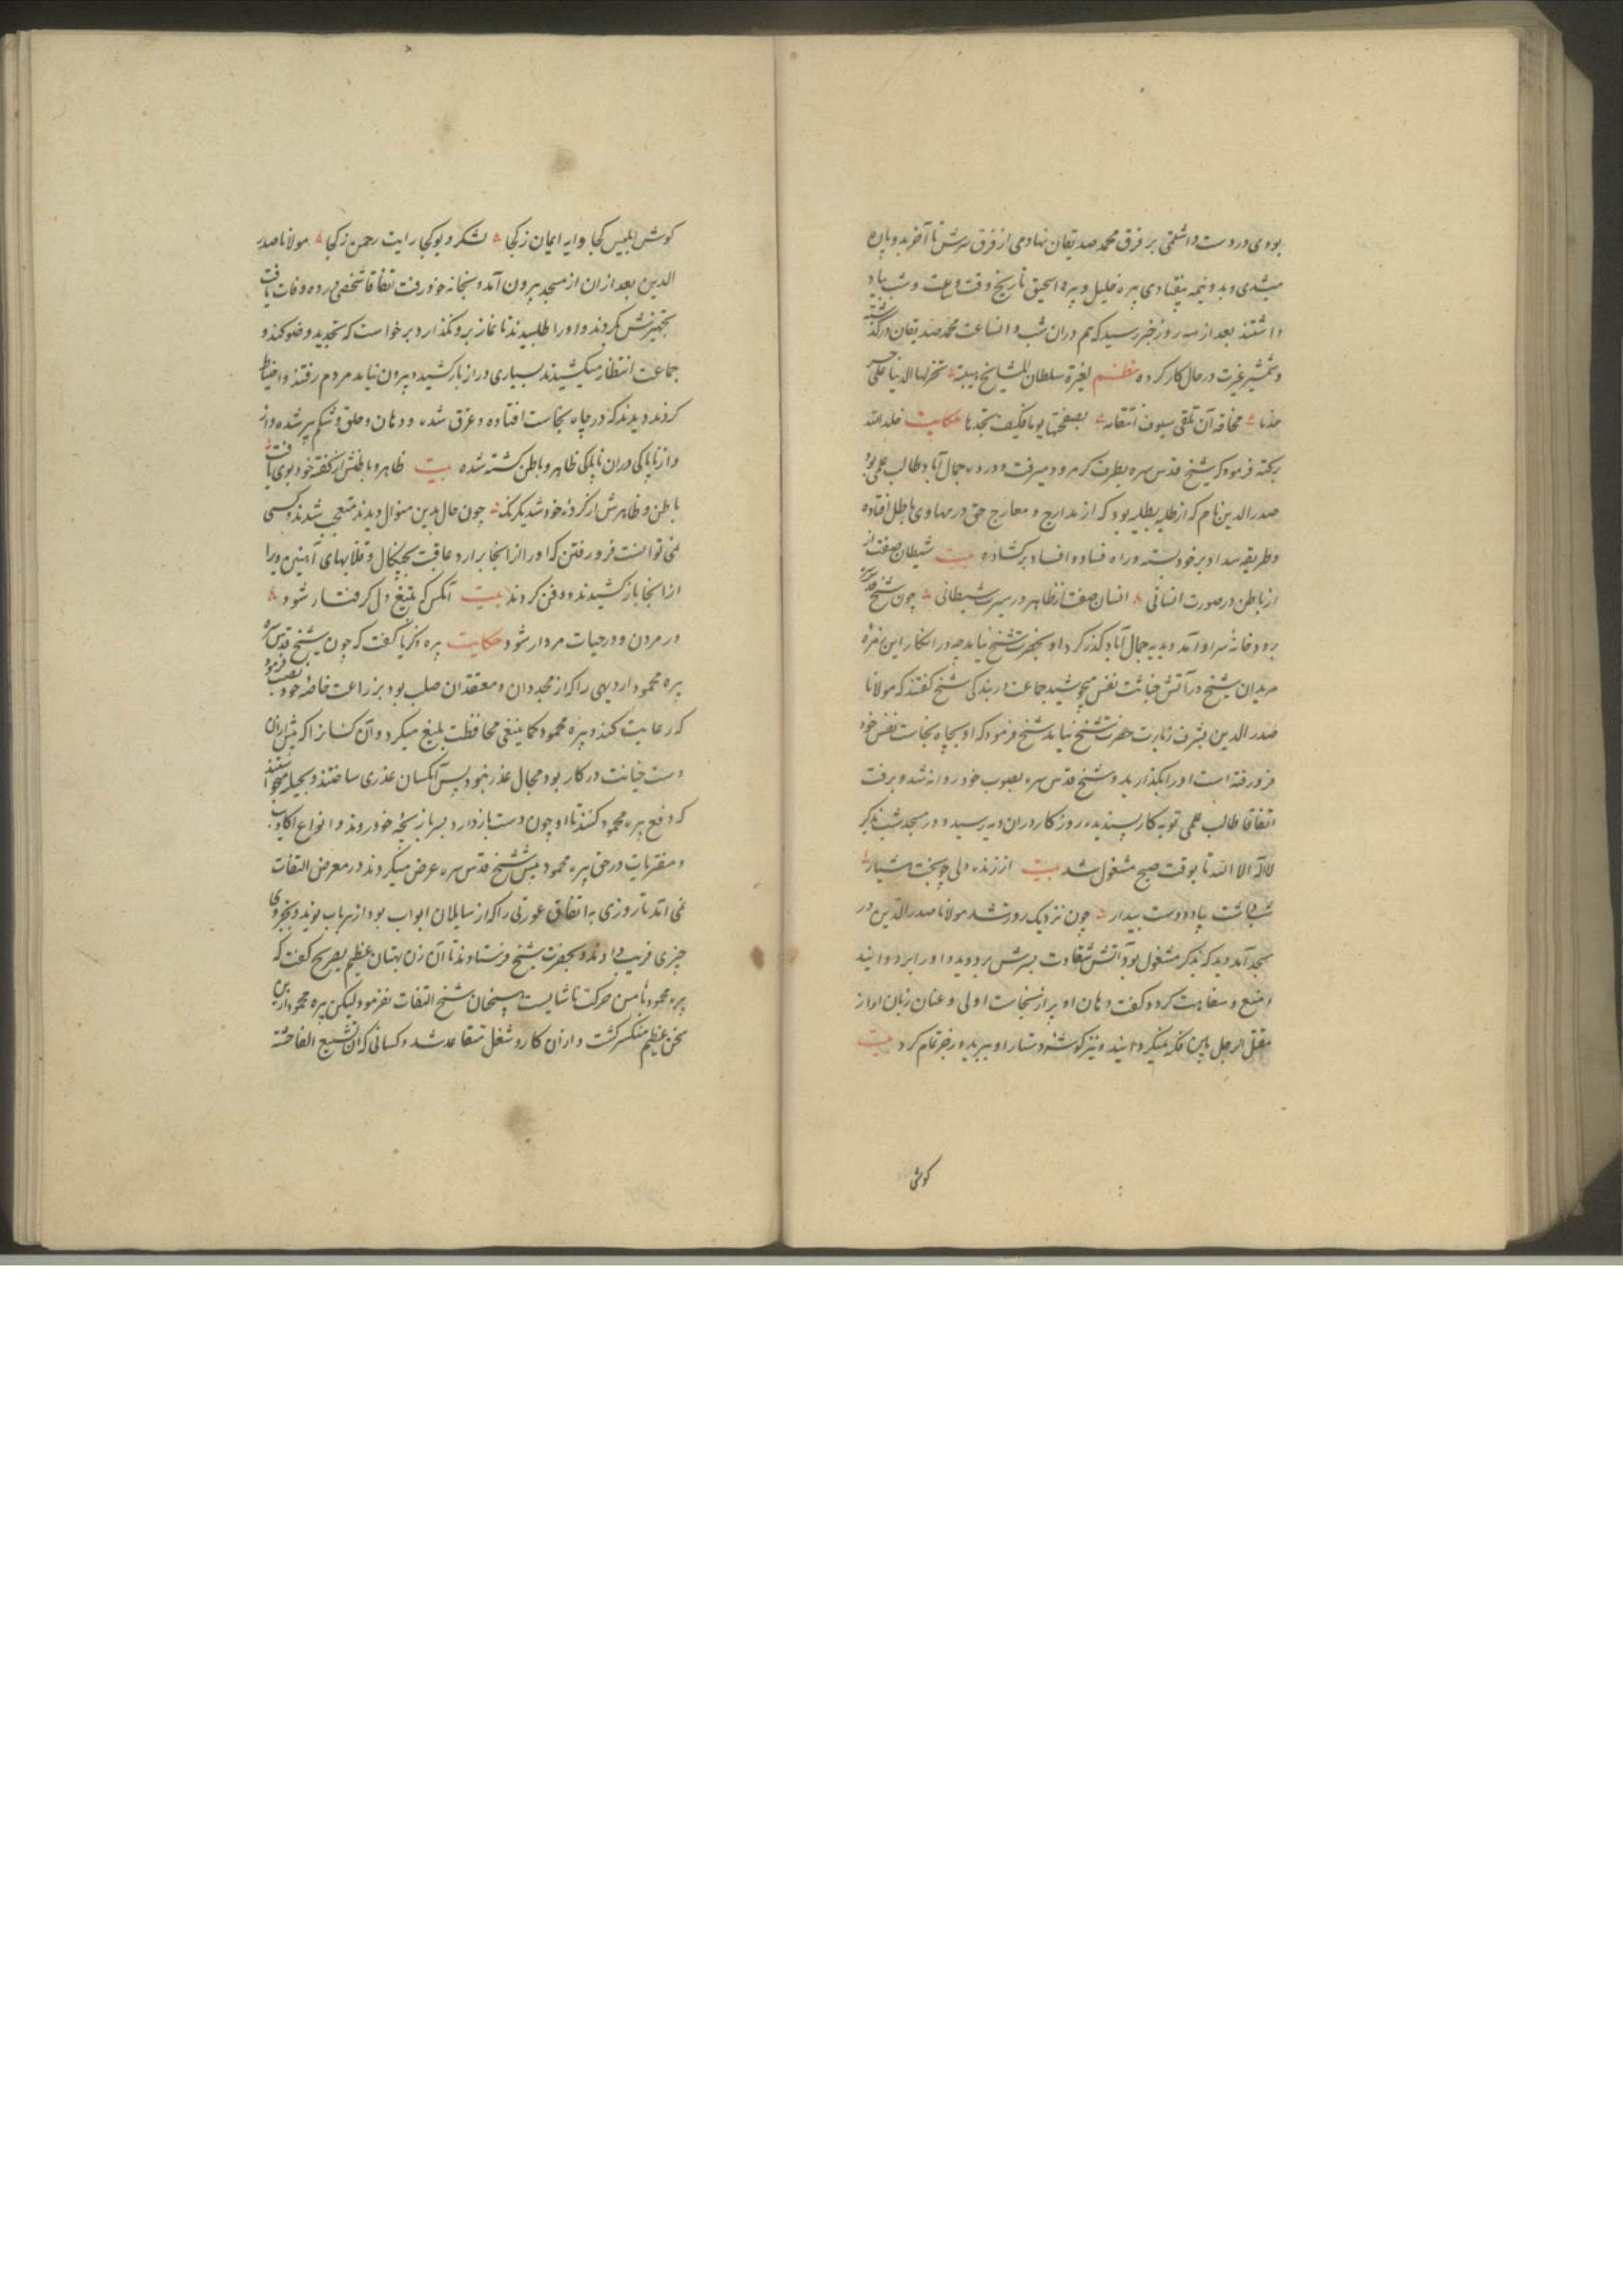 بودی و دست داشتمی بر فرق محمد صدیقان نهادمی از فرق سرش تا آخر بدو پاره
میشدی و بدو نیمه بیفتادی پیره خلیل و پیره اسحیق تاریخ وقت و ساعت و شب یاد
داشتند بعد از سه روز خبر رسید که هم دران شب و انساعت محمد صدیقان درگذشته
و شمشیر غیرت در حال کار کرده نظم لغیرة سلطان المشایخ هیبة تخر لها الدنیا علی
مخافة آن تلقی سیوف انتقامه بصفحتها یوما فکیف بحدها حکایت خلد الله
برکته فرمود که شیخ قدس سره بطرف کرمرود میرفت و در ده جمال آباد طالب علمی بود
صدر الدین نام که از طلبه بطلبه بود که از مدارج و معارج حق در مهاوی باطل افتاده
و طریقه سداد بر خود بسته و راه فساد و افساد برکشاده بیت شیطان صفت از
از باطن در صورت انسانی انسان صفت از ظاهر در سیرت شیطانی چون شیخ قدس سره
برودخانه سراو آمد و بدیه جمال آباد کذر کرد او بحضرت شیخ نیامد چه در انکار این زمره
مریدان شیخ در آتش خباثت نفس میجوشید جماعت در بندکی شیخ کفتند که مولانا
صدر الدین بشرف زیارت حضرت شیخ نیامد شیخ فرمود که او بچاه نجاست نفس خود
فرو رفته است او را بکذارید و شیخ قدس سره بصوب خود روانه شد و برفت
اتفاقا طالب علمی توبه کار پسندیده روزکار دران ده رسید و در مسجد شب بذکر
لا اله الا الله تا بوقت صبح مشغول شد بیت از زنده دلی چو بخت هشیار
شب داشت بیاد دوست بیدار چون نزدیک روز شد مولانا صدر الدین در
مسجد آمد دید که بذکر مشغول بود آتش شقاوت بسرش بر دوید و او را بر دوانید
و منع و سفاهت کرد و کفت دهان او پر از نجاست اولی و عنان زبان او از
مقتل الرجل بین فکیه میکردانید و نیز کوشه دستار او ببرید و زجر تمام کرد بیت
کوش
کوش ابلیس کجا و ایه ایمان ز کجا لشکر دیو کجا رایت رحمن ز کجا مولانا صدر
الدین بعد ازان از مسجد بیرون آمد و بخانه خود رفت اتفاقا شخصی مرده وفات یافت
تجهیزش کردند و او را طلبیدند تا نماز برو بکذارد برخواست که تجدید وضو کند و
جماعت انتظار میکشیدند بسیاری دراز بازکشید و بیرون نیامد مردم رفتند و احتیاط
کردند دیدند که در چاه نجاست افتاده و غرق شده و دهان و حلق و شکم پر شده و از
و از ناپاکی دران ناپاکی ظاهر و باطن کشته شده بیت ظاهر و باطنش از کفته خود بوی یافت
باطن و ظاهرش از کرده خود شد یکرنک چون حال بدین منوال دیدند متعجب شدند و کسی
نمی توانست فرو رفتن که او را از انجا برارد عاقبت بچنکال و قلابهای آهنین ویرا
از انجا بازکشیدند و دفن کردند بیت آنکس که بتیغ دل کرفتار شود
در مردن و در حیات مردار شود حکایت پیره زکریا کفت که چون شیخ قدس سره
پیره محمود اردبیلی را که از مجددان و معتقدان صلب بود بزراعت خاصه خود نصب فرمود
که رعایت کند و پیره محمود کما ینبغی محافظت بلیغ میکرد و آن کسانرا که پیش ازان
دست خیانت در کار بود مجال عذر نبود پس آنکسان عذری ساختند و بحیله میخواستند
که دفع پیره محمود کنند تا او چون دست بازدارد بسر بازیچه خود روند و انواع اکاذیب
و مفتریات در حق پیره محمود پیش شیخ قدس سره عرض میکردند در معرض التفات
نمی افتد تا روزی به اتفاق عورتی را که از سایلان ابواب بود از هر باب بوید و بخروی
چیزی فریب دادند و بحضرت شیخ فرستادند تا آن زن بهتان عظیم بصریح کفت که
پیره محمود با من حرکت ناشایست بسخان شیخ التفات نفرمود لیکن پیره محمود ازین
سخن عظیم منکسر کشت و ازان کار و شغل متقاعد شد و کسانی که ان تشیع الفاحشه